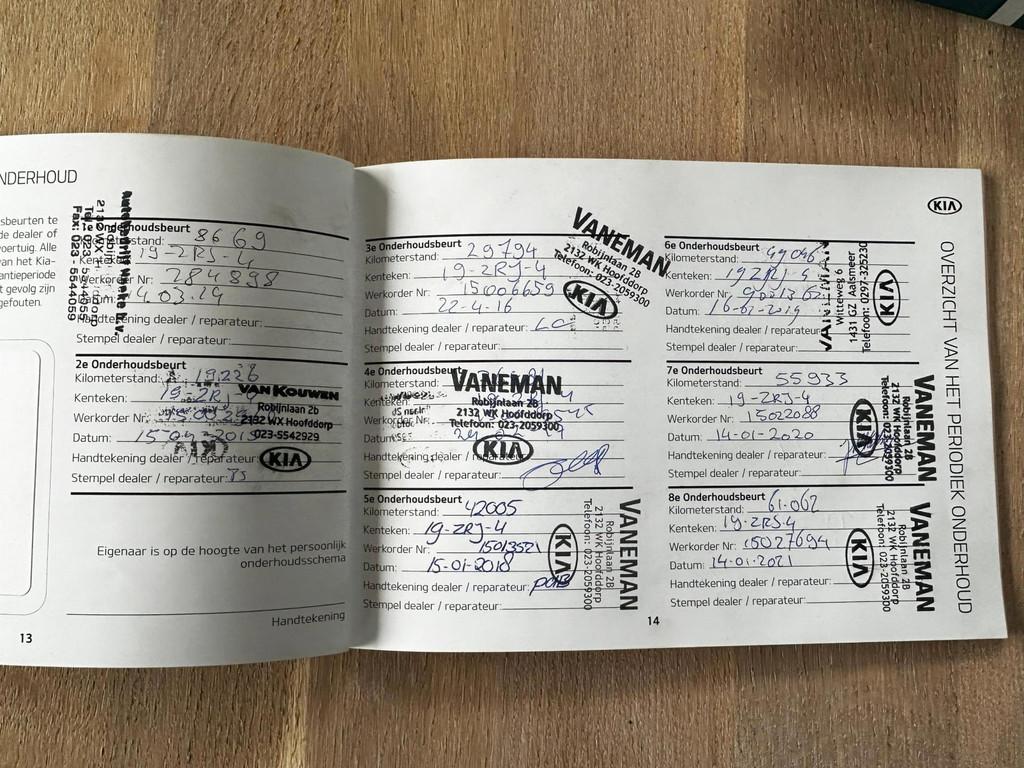 NDERHOUD
sbeurten te
de dealer of
voertuig. Alle
van het Kia-
antieperiode
t gevolg zijn
gefouten.
13
Onderhoudsbeurt
8669
19-ZRJ-4
Werkorder Nr: 284898
Datum:
Handtekening dealer / reparateur:
Stempel dealer / reparateur:
Tel: 023 - 5544055
Fax: 023 - 5544059
2e Onderhoudsbeurt
Kilometerstand:
Kenteken: 19-ZRJ-4
Werkorder Nr:
Datum:
Handtekening dealer / reparateur:
Stempel dealer / reparateur:
VAN KOUWEN
Robijnlaan 2b
2132 WX Hoofddorp
023-5542929
KIA
Eigenaar is op de hoogte van het persoonlijk
onderhoudsschema
Handtekening
3e Onderhoudsbeurt
Kilometerstand: 29794
Kenteken: 19-ZRJ-4
Werkorder Nr: 15006659
Datum: 22-4-16
Handtekening dealer / reparateur:
Stempel dealer / reparateur:
VANEMAN
Robijnlaan 2B
2132 WK Hoofddorp
Telefoon: 023-2059300
KIA
4e Onderhoudsbeurt
Kilometerstand:
Kenteken:
Werkorder Nr:
Datum:
Handtekening dealer / reparateur:
Stempel dealer / reparateur:
VANEMAN
Robijnlaan 2B
2132 WK Hoofddorp
Telefoon: 023-2059300
KIA
5e Onderhoudsbeurt
Kilometerstand: 42005
Kenteken: 19-ZRJ-4
Werkorder Nr: 15013521
Datum: 15-01-2018
Handtekening dealer / reparateur:
Stempel dealer / reparateur:
VANEMAN
Robijnlaan 2B
2132 WK Hoofddorp
Telefoon: 023-2059300
KIA
14
6e Onderhoudsbeurt
Kilometerstand: 49046
Kenteken: 19ZRJ-4
Werkorder Nr:
Datum:
Handtekening dealer / reparateur:
Stempel dealer / reparateur:
Witteweg 6
1431 GZ Aalsmeer
Telefoon: 0297-325230
KIA
7e Onderhoudsbeurt
Kilometerstand: 55933
Kenteken: 19-ZRJ-4
Werkorder Nr: 15022088
Datum: 14-01-2020
Handtekening dealer / reparateur:
Stempel dealer / reparateur:
VANEMAN
Robijnlaan 2B
2132 WK Hoofddorp
Telefoon: 023-2059300
KIA
8e Onderhoudsbeurt
Kilometerstand: 61.062
Kenteken: 19-ZRJ-4
Werkorder Nr: 15027694
Datum: 14-01-2021
Handtekening dealer / reparateur:
Stempel dealer / reparateur:
VANEMAN
Robijnlaan 2B
2132 WK Hoofddorp
Telefoon: 023-2059300
KIA
KIA
OVERZICHT VAN HET PERIODIEK ONDERHOUD